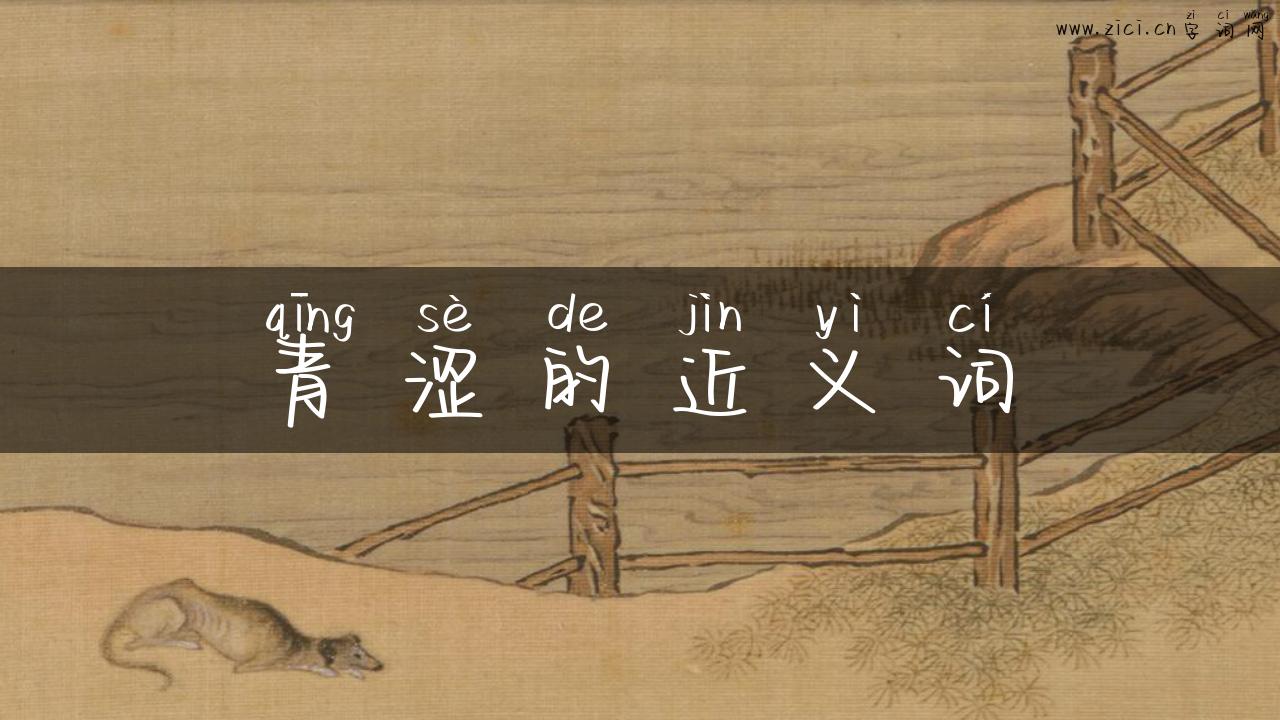 zì cí wǎng
www.zici.cn字词网
qīng sè de jìn yì cí
青涩的近义词